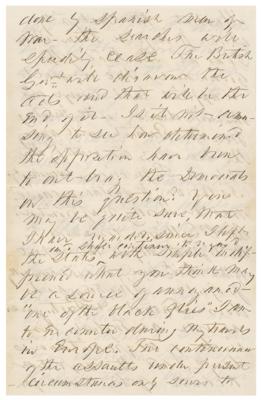 done by Spanish men of
War the searches will
speedily cease. The British
Govt will disavow the
acts and that will be the
end of it. Is it not
to see how determined
the opposition have been
to out-brag the Democrats
on this question? You
may be quite sure, that
I have regarded, since I left
and shall continue to regard
the States, with simple indif-
ference what you think may
be a source of annoyance
"one of the black flies" I am
to encounter during my travels
in Europe. The continuance
of the assaults under present
circumstances only serves to